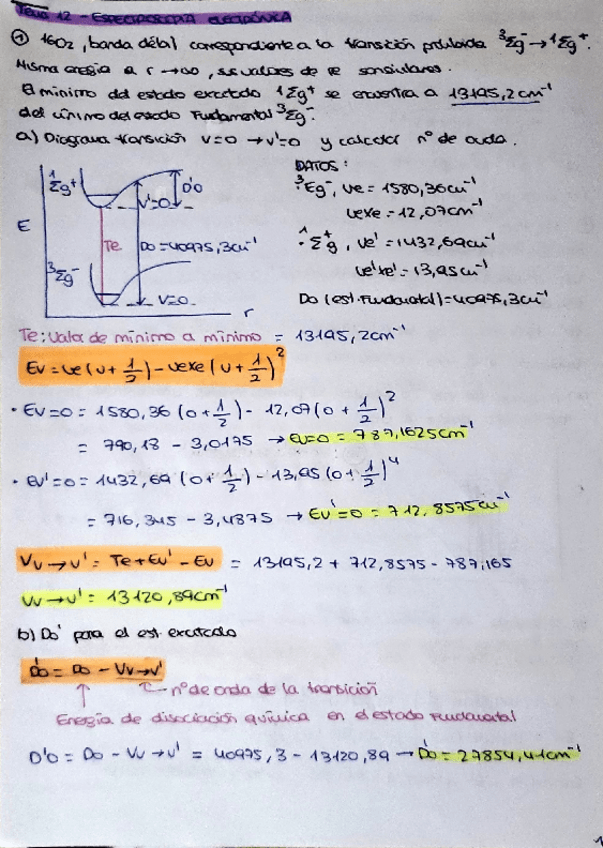 TEMA 12 - ESPECTROSCOPIA ELECTRÓNICA
① 16O2, banda débil correspondiente a la transición prohibida ³Σg⁻ → ¹Σg⁺.
Misma energía a r → ∞, sus valores de re son similares.
El mínimo del estado excitado ¹Σg⁺ se encuentra a 13195,2 cm⁻¹
del mínimo del estado Fundamental ³Σg⁻.
a) Diagrama transición v=0 → v'=0 y calcular nº de onda.
DATOS:
· ³Σg⁻, νe = 1580,36 cm⁻¹
νexe = 12,07 cm⁻¹
· ¹Σg⁺, νe' = 1432,69 cm⁻¹
νe'xe' = 13,95 cm⁻¹
D0 (est. Fundamental) = 40975,3 cm⁻¹
¹Σg⁺
D'0
V'=0
E
Te
D0 = 40975,3 cm⁻¹
³Σg⁻
V=0
r
Te: Valor de mínimo a mínimo = 13195,2 cm⁻¹
Ev = νe (v + 1/2) - νexe (v + 1/2)²
· Ev=0 = 1580,36 (0 + 1/2) - 12,07 (0 + 1/2)²
= 790,18 - 3,0175 → Ev=0 = 787,1625 cm⁻¹
· Ev'=0 = 1432,69 (0 + 1/2) - 13,95 (0 + 1/2)⁴
= 716,345 - 3,4875 → Ev'=0 = 712,8575 cm⁻¹
Vv→v' = Te + Ev' - Ev = 13195,2 + 712,8575 - 787,165
Vv→v' = 13120,89 cm⁻¹
b) D0' para el est. excitado
D'0 = D0 - Vv→v'
nº de onda de la transición
Energía de disociación química en el estado Fundamental
D'0 = D0 - Vv→v' = 40975,3 - 13120,89 → D'0 = 27854,41 cm⁻¹
1